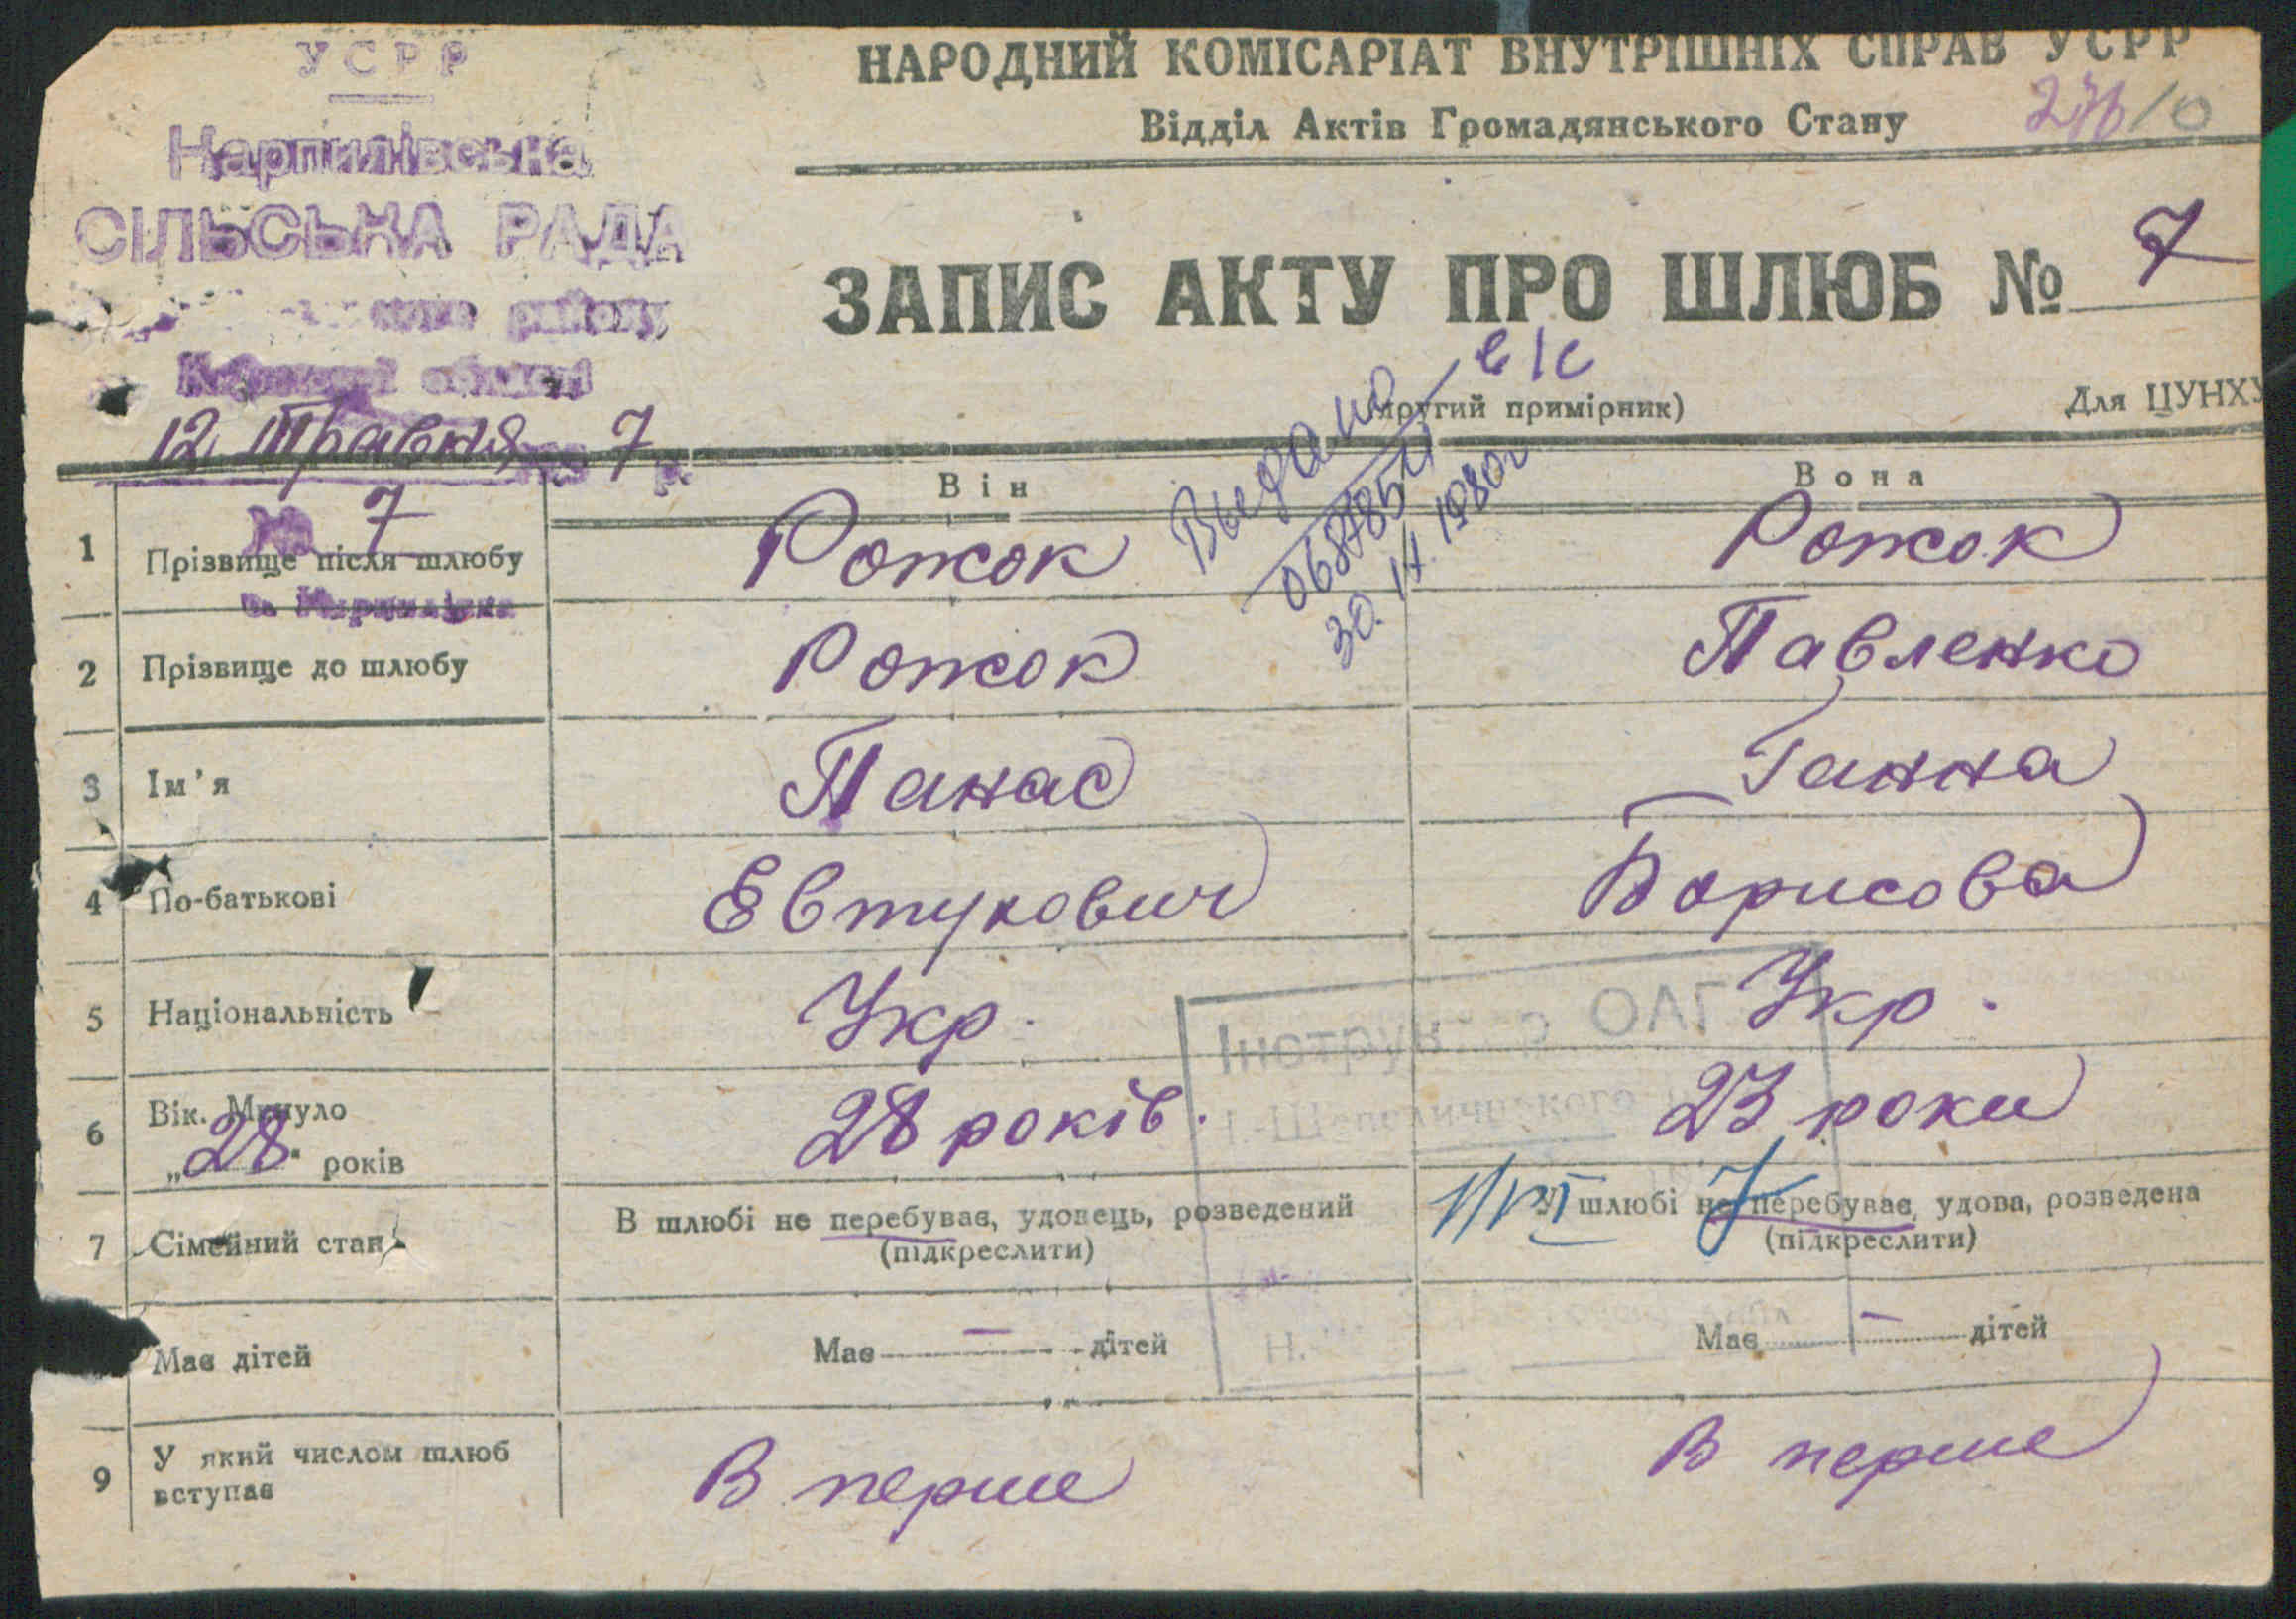 УСРР
Карпилівська
СІЛЬСЬКА РАДА
району,
Київської області
12 травня 7 р.
№ 7
с. Карпилівка
НАРОДНИЙ КОМІСАРІАТ ВНУТРІШНІХ СПРАВ УСРР
Відділ Актів Громадянського Стану
276/0
ЗАПИС АКТУ ПРО ШЛЮБ № 7
(другий примірник)
Для ЦУНХУ
Выдано е/с
30.
1980г
Він Вона
1 Прізвище після шлюбу Рожок Рожок
2 Прізвище до шлюбу Рожок Павленко
3 Ім'я Панас Ганна
4 По-батькові Евтухович Борисова
5 Національність Укр. Укр.
6 Вік. Минуло „28" років 28 років. 23 роки
7 Сімейний стан В шлюбі не перебуває, удовець, розведений (підкреслити) У шлюбі не перебуває, удова, розведена (підкреслити)
Має дітей Має — дітей Має — дітей
9 У який числом шлюб вступає В перше В перше
Інструктор ОАГС